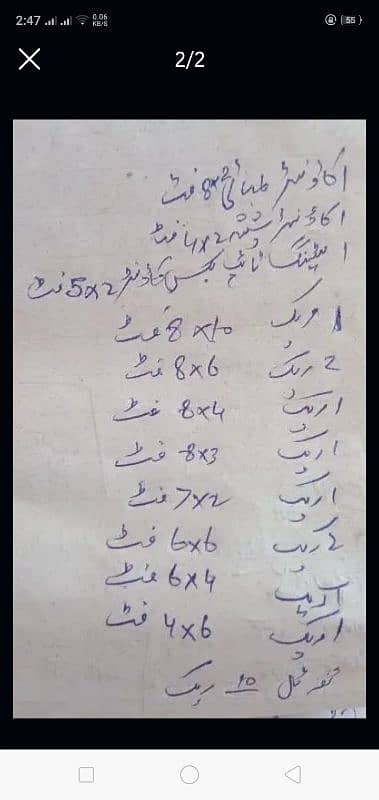 2:47 0.06 KB/S 55
2/2
1 کاؤنٹر لمبائی 8x2 فٹ
1 کاؤنٹر شیشہ 4x2 فٹ
1 سیٹنگ ٹائپ بکس کاؤنٹر 5x2 فٹ
1 ریک 8x10 فٹ
2 ریک 8x6 فٹ
1 ریک 8x4 فٹ
1 ریک 8x3 فٹ
1 ریک 7x2 فٹ
2 ریک 6x6 فٹ
1 ریک 6x4 فٹ
1 ریک 4x6 فٹ
ٹوٹل 10 ریک